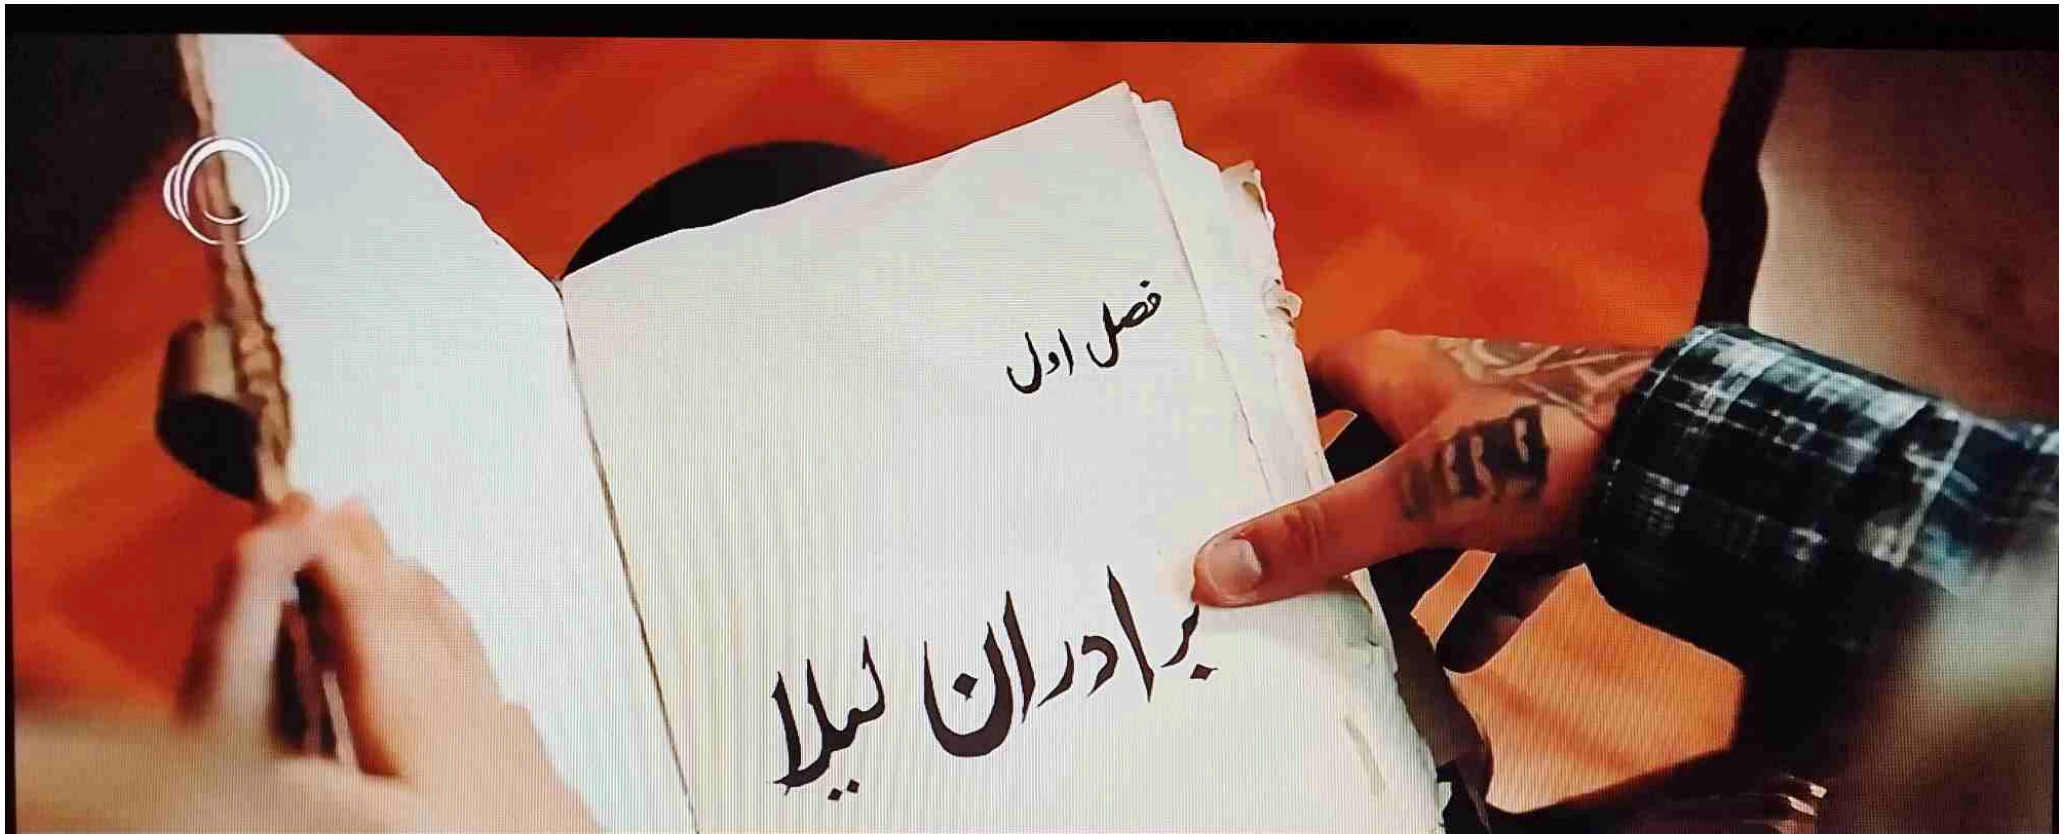 فصل اول
برادران لیلا